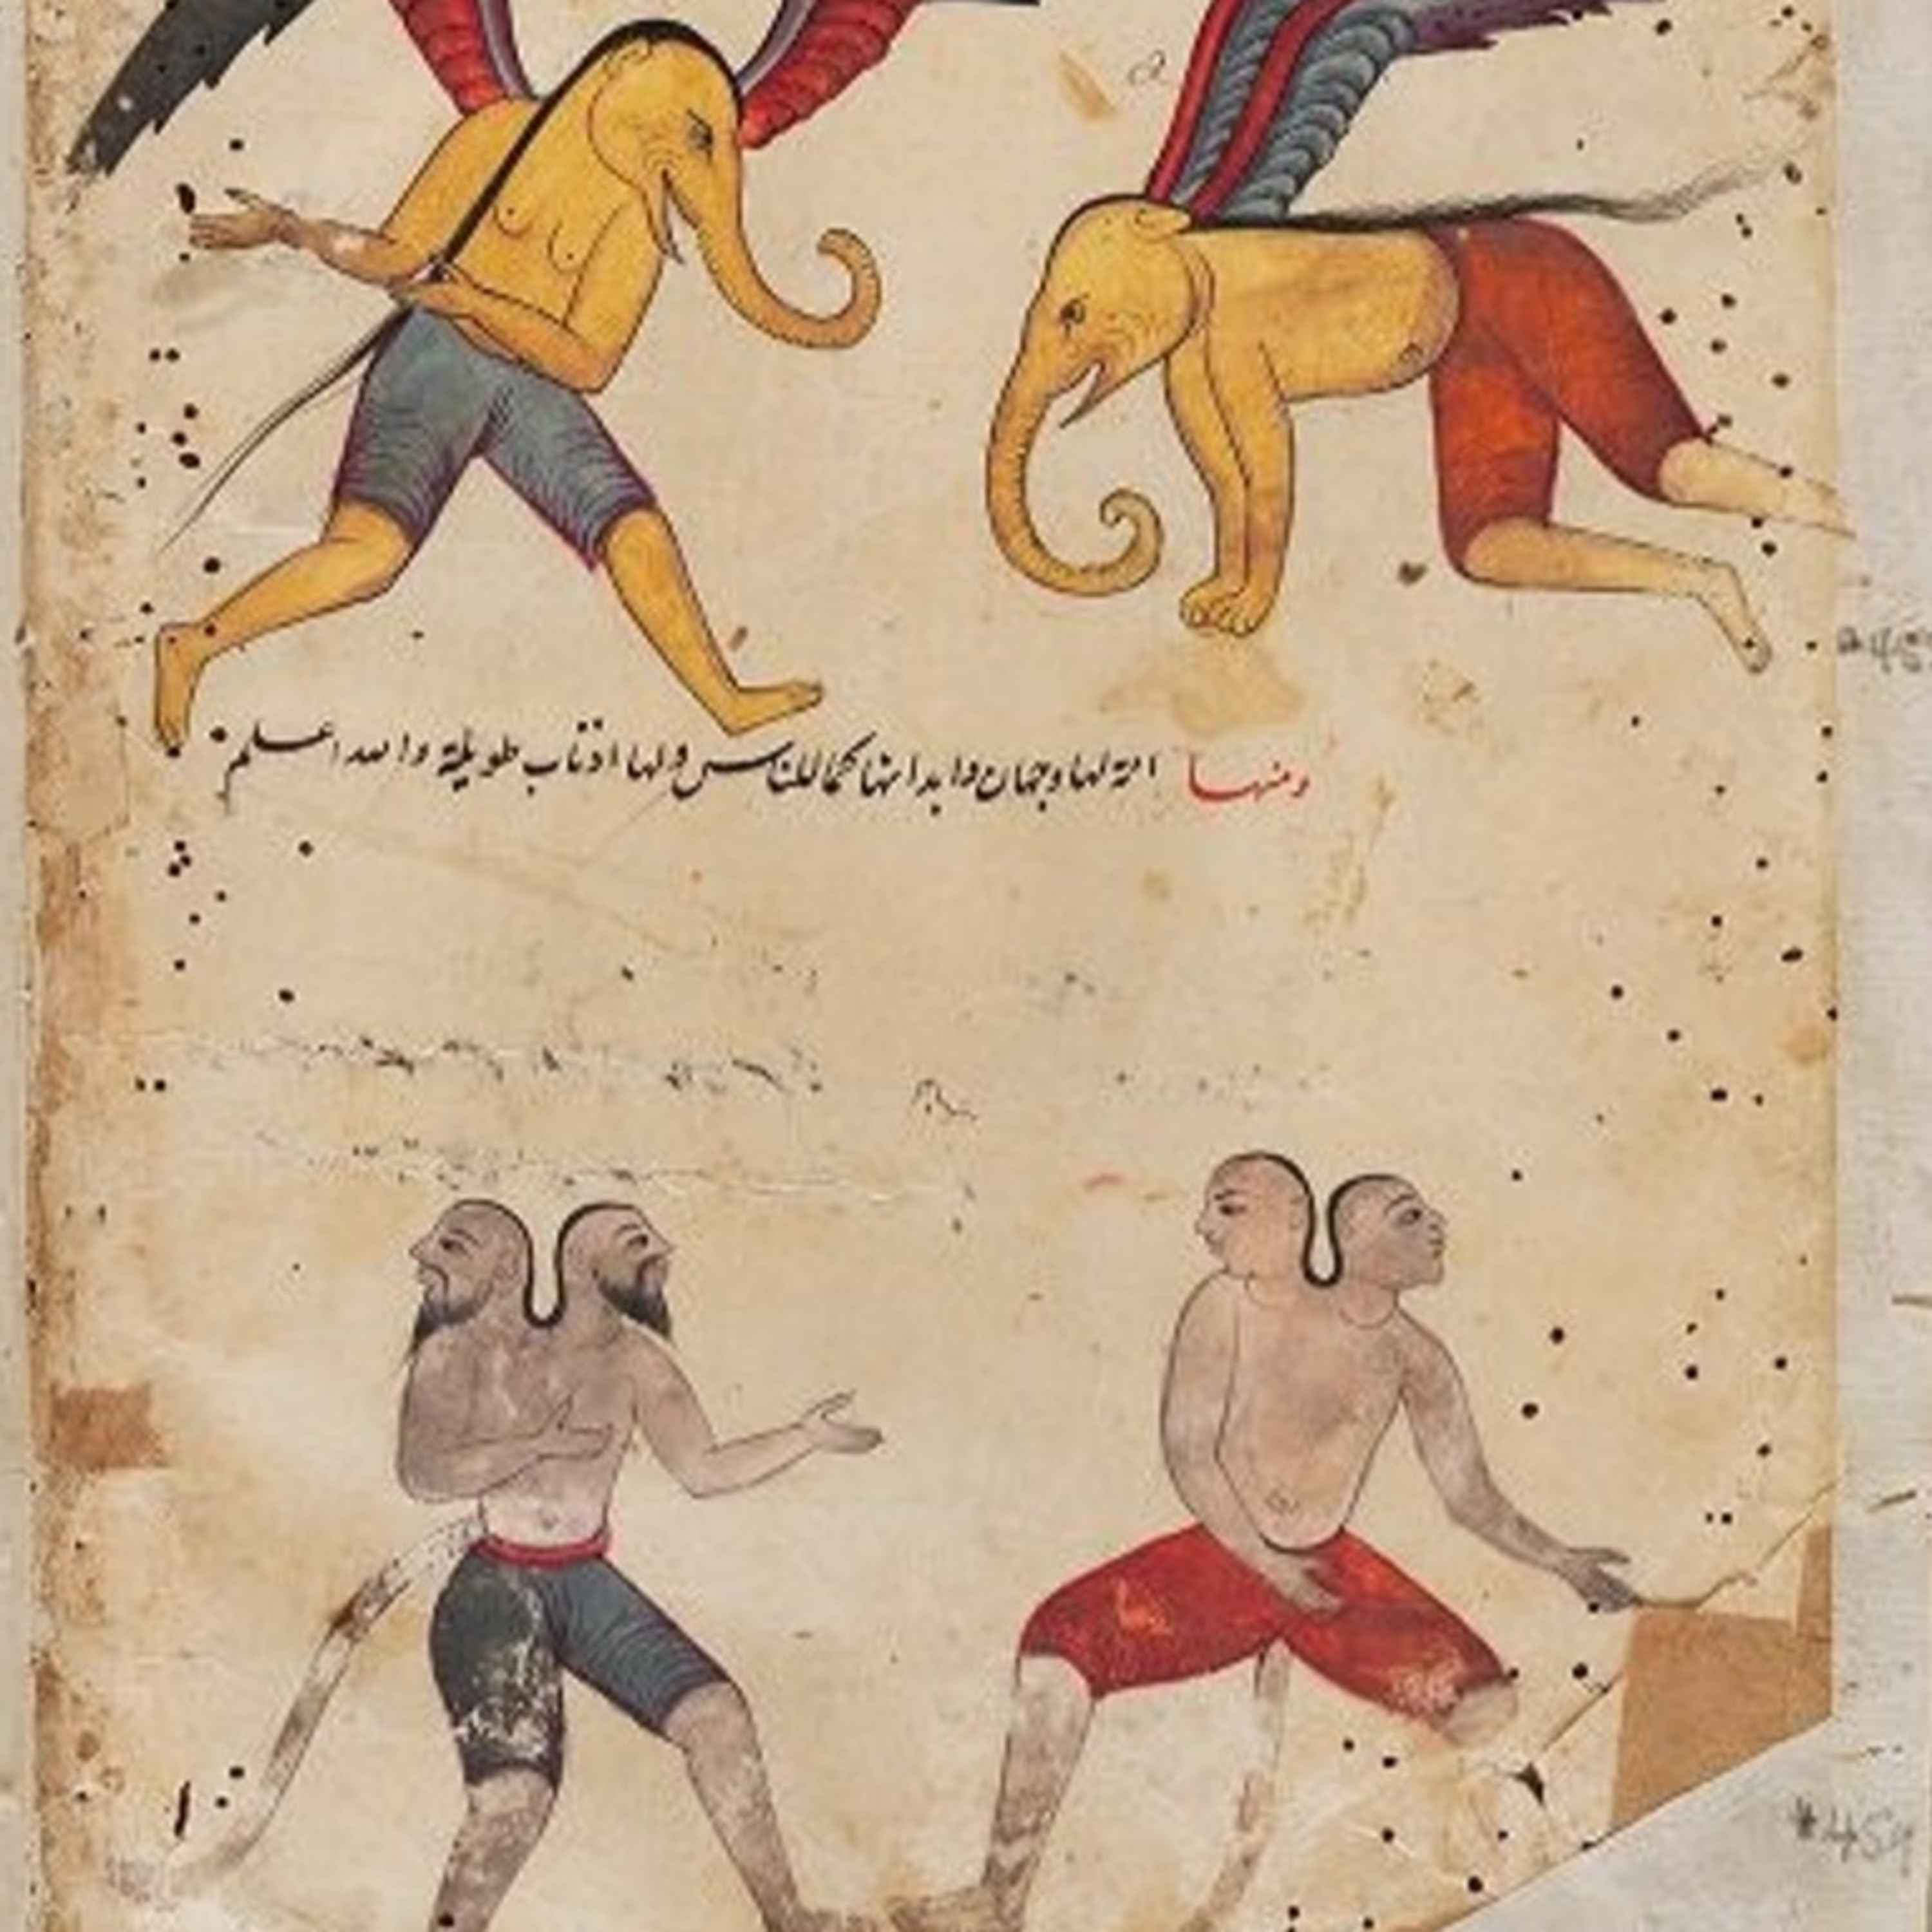 ومنها امة لها وجهان وابدانها كما للناس ولها اذناب طويلة والله اعلم
#459